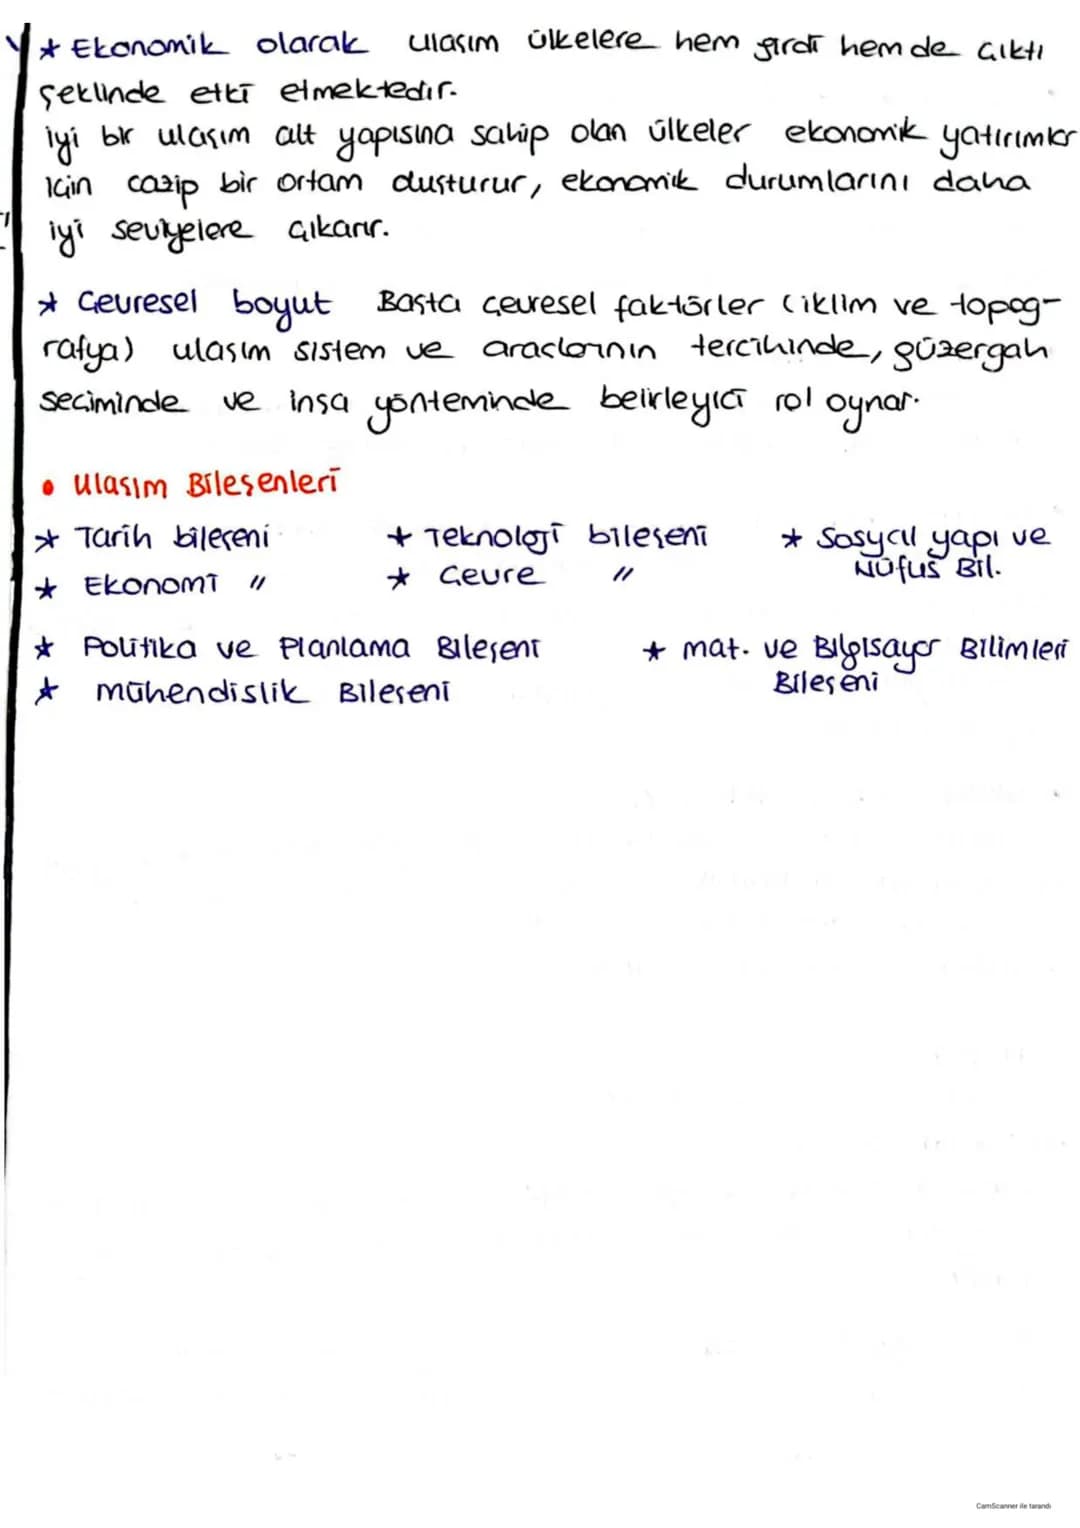 * Ekonomik olarak ulaşım ülkelere hem girdi hem de çıktı
şeklinde etki etmektedir.
iyi bir ulaşım alt yapısına sahip olan ülkeler ekonomik yatırımlar
için cazip bir ortam oluşturur, ekonomik durumlarını daha
iyi seviyelere çıkarır.
* Çevresel boyut Başta çevresel faktörler (iklim ve topog-
rafya) ulaşım sistem ve araçlarının tercihinde, güzergah
seçiminde ve inşa yönteminde belirleyici rol oynar.
• Ulaşım Bileşenleri
* Tarih bileşeni * Teknoloji bileşeni * Sosyal yapı ve
Nüfus Bil.
* Ekonomi " * Çevre "
* Politika ve Planlama Bileşeni * mat. ve Bilgisayar Bilimleri
Bileşeni
* mühendislik Bileşeni
CamScanner ile tarandı